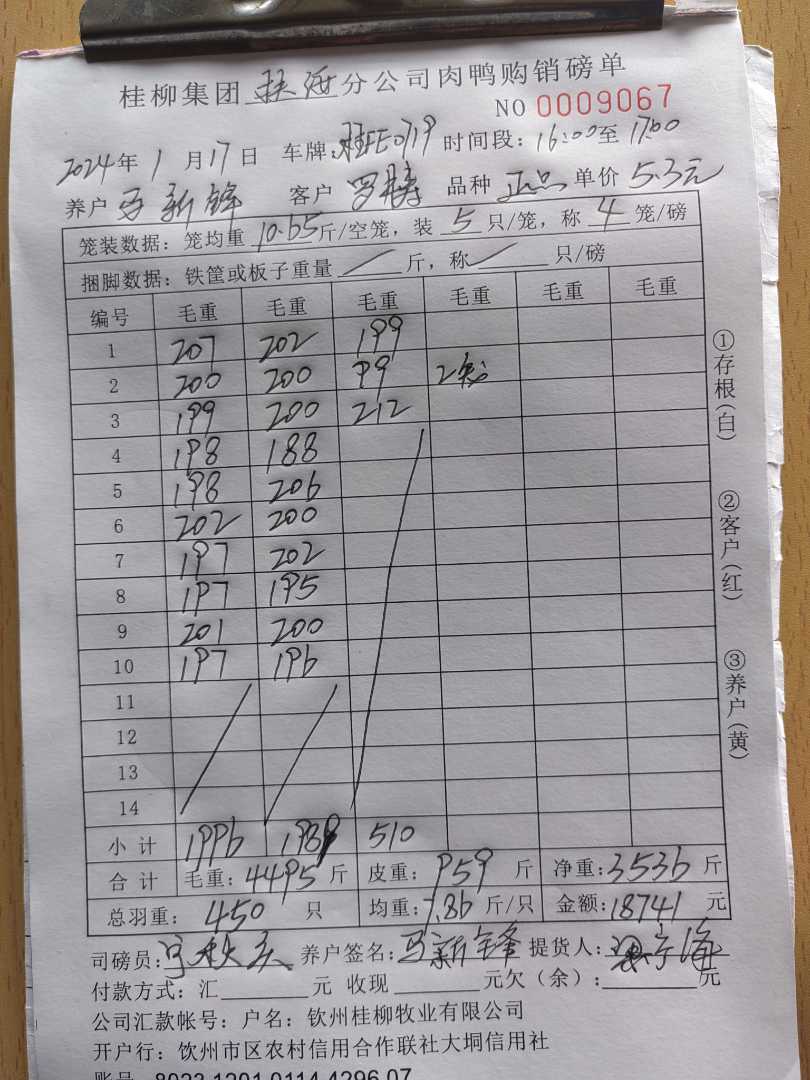 桂柳集团 钦海 分公司肉鸭购销磅单
NO 0009067
2024年 1 月 17 日 车牌: 桂FE0719 时间段: 16:00至 17:00
养户 马新锋 客户 罗勝 品种 正品 单价 5.3元
笼装数据: 笼均重 10.65 斤/空笼, 装 5 只/笼, 称 4 笼/磅
捆脚数据: 铁筐或板子重量 斤, 称 只/磅
编号 毛重 毛重 毛重 毛重 毛重 毛重
1 207 202 199
2 200 200 99 2笼
3 199 200 212
4 198 188
5 198 206
6 202 200
7 197 202
8 197 195
9 201 200
10 197 196
11
12
13
14
小计 1996 1989 510
合计 毛重: 4495 斤 皮重: 959 斤 净重: 3536 斤
总羽重: 450 只 均重: 7.86 斤/只 金额: 18741 元
司磅员: 养户签名: 马新锋 提货人:
付款方式: 汇 元 收现 元欠(余): 元
公司汇款帐号: 户名: 钦州桂柳牧业有限公司
开户行: 钦州市区农村信用合作联社大垌信用社
账号 8023 1201 0114 4296 07
①存根(白)
②客户(红)
③养户(黄)